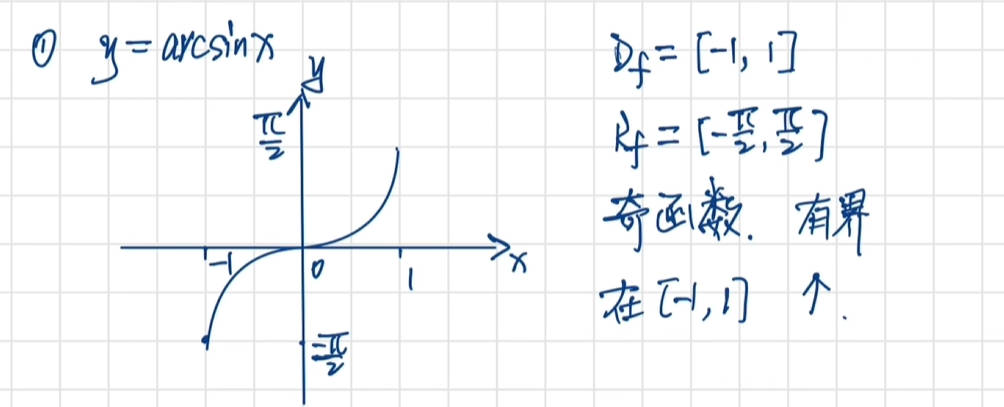 ① y = arcsin x
y
π/2
-1
0
1
x
-π/2
Df = [-1, 1]
Rf = [-π/2, π/2]
奇函数. 有界
在 [-1, 1] ↑.